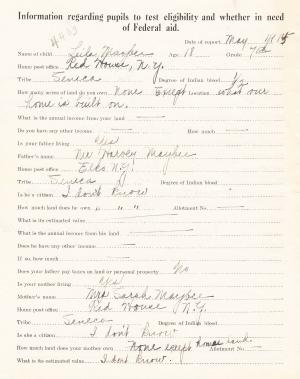 Information regarding pupils to test eligibility and whether in need
of Federal aid.
Date of report, May
Name of child Leila Maybee Age 18 Grade 7th
Home post office Red House, N.Y.
Tribe Seneca Degree of Indian blood 1/2
How many acres of land do you own None Except Location what our
home is built on.
What is the annual income from your land
Do you have any other income How much
Is your father living? Yes
Father's name Mr Harvey Maybee
Home post office N.Y.
Tribe Seneca Degree of Indian blood
Is he a citizen I don't know
How much land does he own " " " Allotment No.
What is its estimated value
What is the annual income from his land
Does he have any other income
If so, how much
Does your father pay taxes on land or personal property No
Is your mother living Yes
Mother's name Mrs Sarah Maybee
Home post office Red House N.Y.
Tribe Seneca Degree of Indian blood
Is she a citizen I don't know
How much land does your mother own None except home land. Allotment No.
What is its estimated value I dont know.